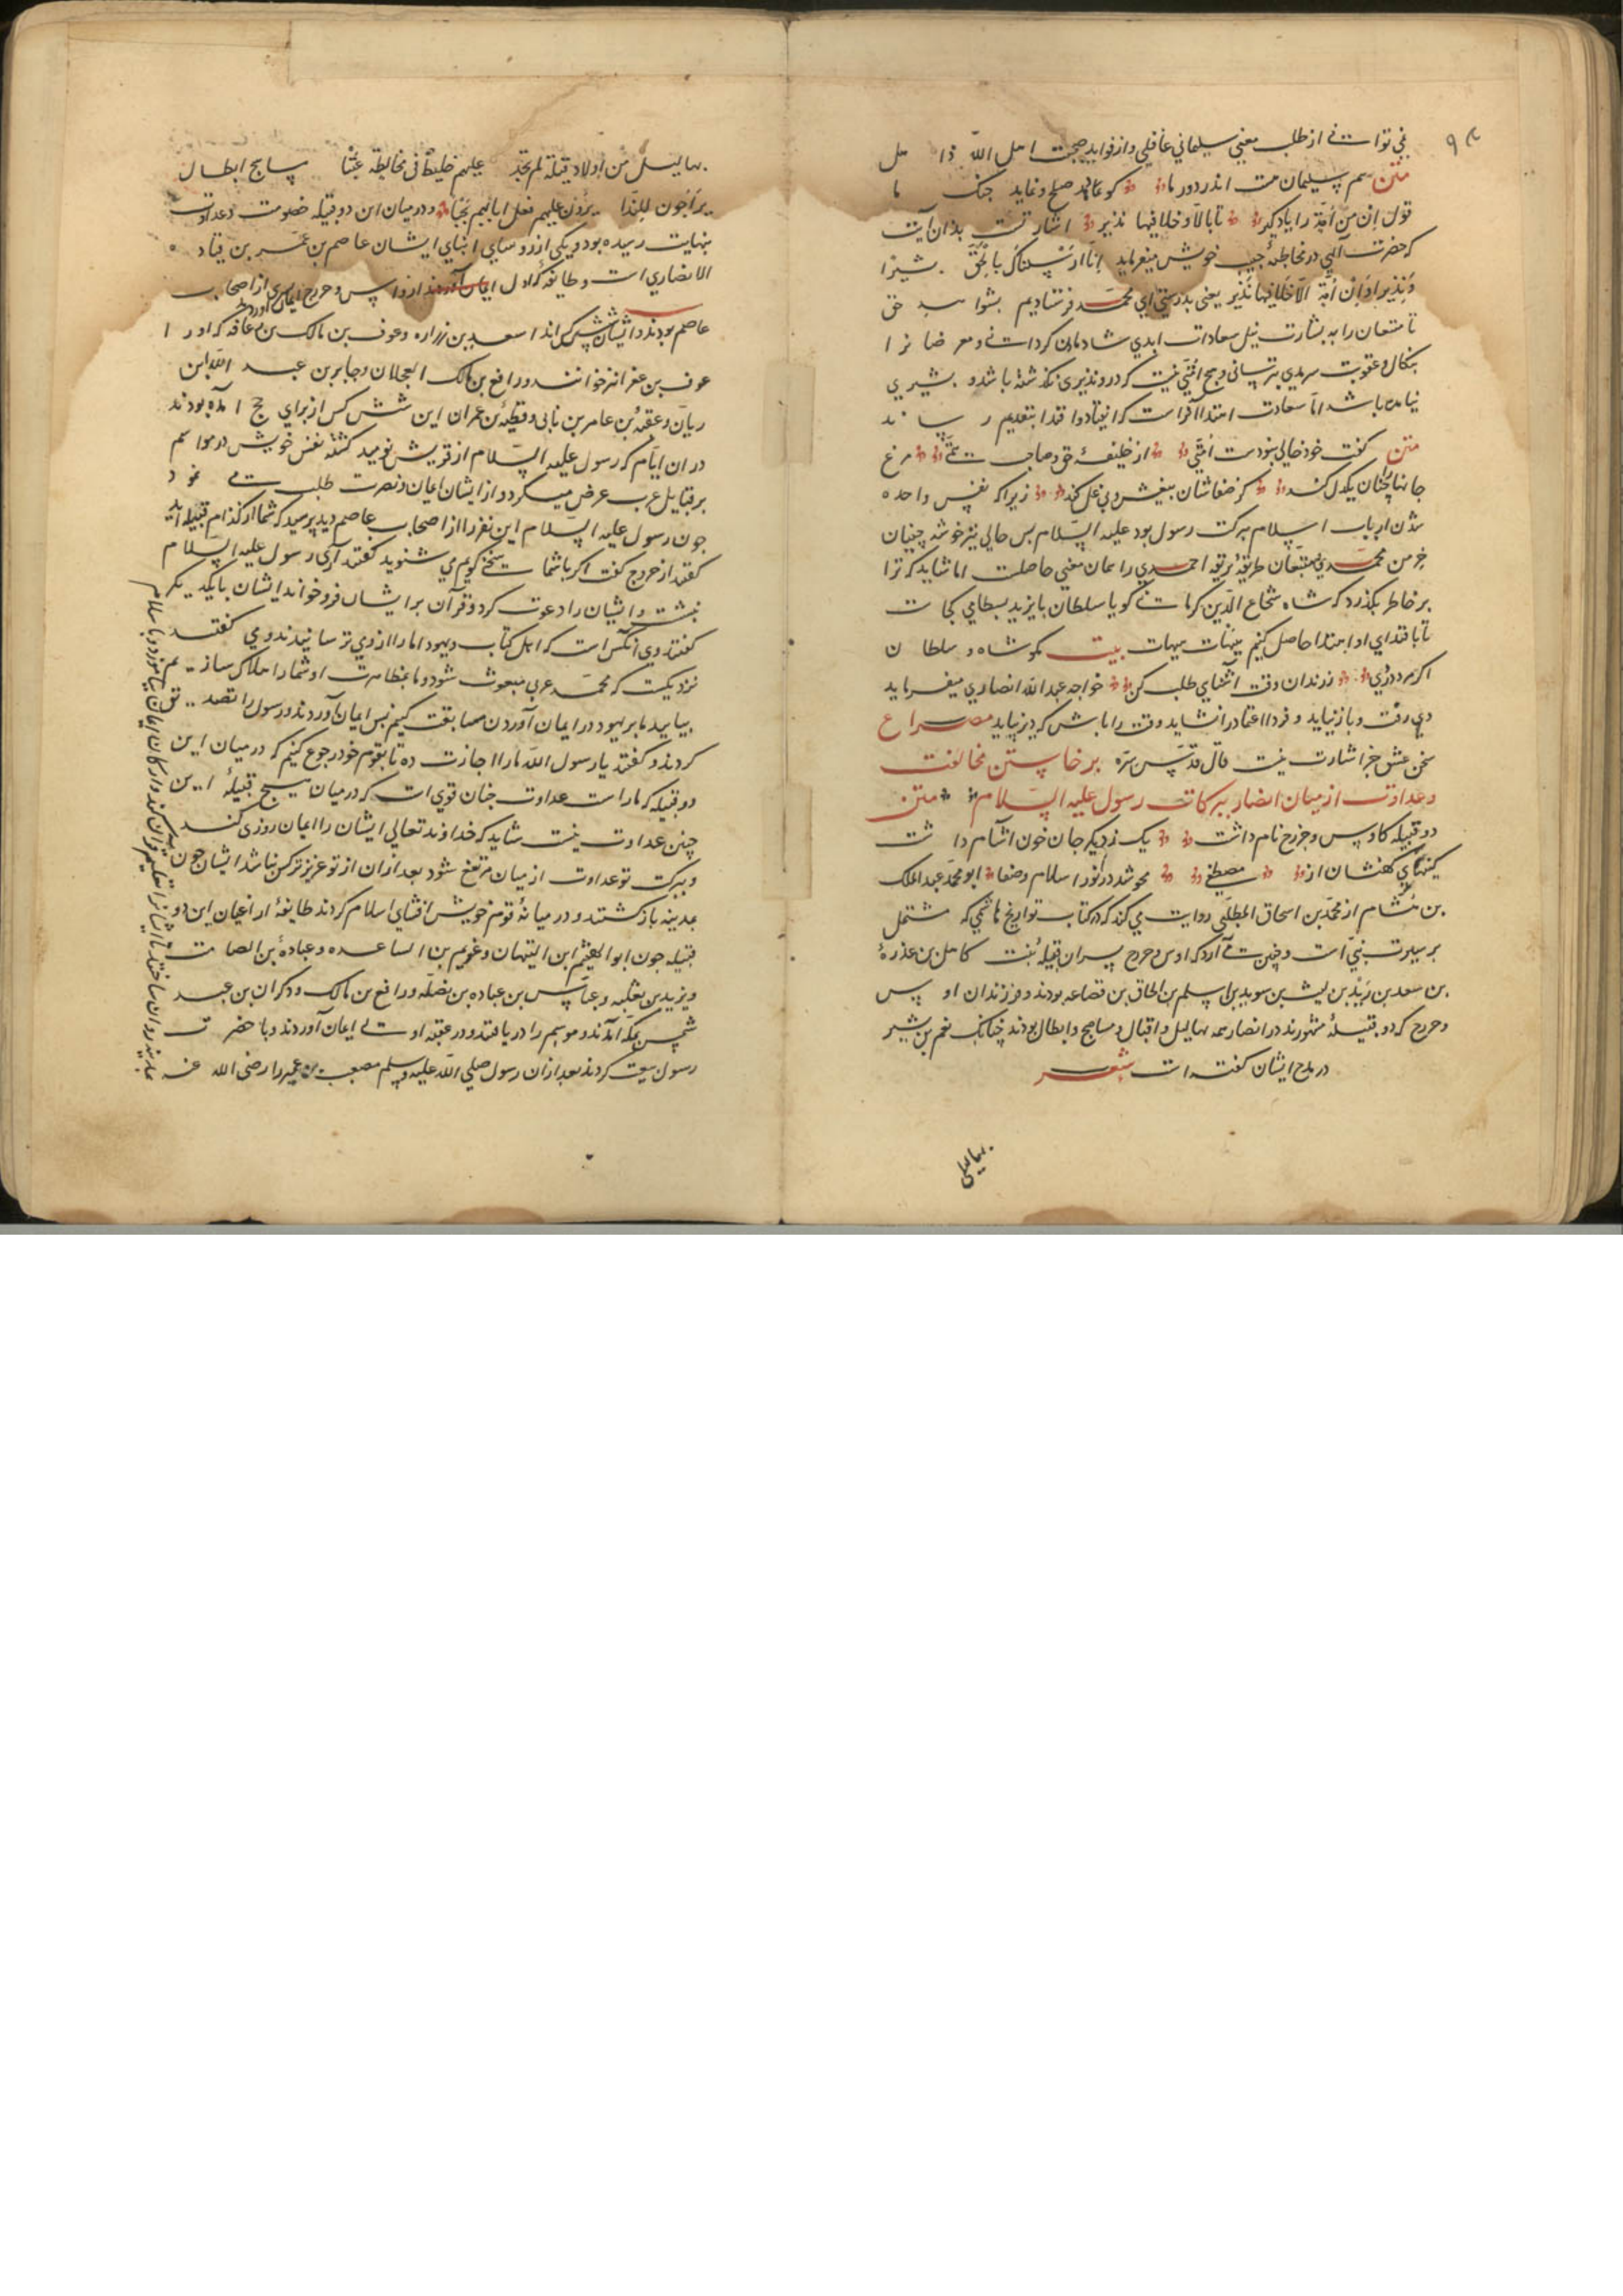 غني توانی از طلب معني سليماني غافلي و از فوايد صحبت اهل الله ذاهل
متن هم سليمان هست اندر دور ما کو نمايد صلح و نمايد جنک ما
قول ان من امة را ياد کير تا بالا و خلا فيها نذير اشارتست بدان آيت
که حضرت الهي در مخاطبهٔ حبيب خويش ميفرمايد انا ارسلناك بالحق بشيرا
و نذيرا و ان من امة الا خلا فيها نذير يعني بدرستي اي محمد فرستاديم بتو
تا متبعان را به بشارت نيل سعادات ابدي شادمان کرداني و معرضانرا
بنکال و عقوبت سرمدي بترساني و هيچ امتي نيست که درو نذيري نکذشته باشد و بشيري
نيامده باشد اما سعادت اهتدا آنراست که انقياد و اقتدا بتقديم رساند
متن کفت خود خالي نبودست امتي از خليفهٔ حق و صاحب همتي مرغ
جانها را چنان يکدل کند کز صفاشان بيغش و بي غل کند زيرا که نفس واحده
شدن ارباب اسلام ببرکت رسول بود عليه السلام پس حالي نيز خوشه چينان
خرمن محمدي و متبعان طريقهٔ احمدي را همان معني حاصلست اما شايد که ترا
بر خاطر بکذرد که شاه شجاع الدين کرماني کو يا سلطان بايزيد بسطامي کجاست
تا باقتداي او اهتدا حاصل کنيم هيهات هيهات بيت مکو شاه و سلطان
اکر مرد دردي ز رندان وقت آشنايي طلب کن خواجه عبد الله انصاري ميفرمايد
دي رفت و باز نيايد و فردا اعتماد را نشايد وقت را باش که دير نپايد مصراع
سخن عشق جز اشارت نيست قال قدس سره برخاستن مخالفت
و عداوت از ميان انصار ببرکات رسول عليه السلام متن
دو قبيله کاوس و خزرج نام داشت يک ز ديکر جان خون آشام داشت
کينهاي کهنشان از مصطفي محو شد در نور اسلام و صفا ابو محمد عبد الملک
بن هشام از محمد بن اسحاق المطلبي روايت مي کند که در کتاب تواريخ هاشمي که مشتمل
بر سيرت نبي است و چنين مي آرد که اوس و خزرج پسران قيله بنت کامل بن عذرهٔ
بن سعد بن زيد بن ليث بن سويد بن اسلم بن الحاق بن قضاعه بودند و فرزندان اوس
و خزرج که دو قبيلهٔ مشهورند در انصار همه بهاليل و اقبال و مساميح و ابطال بودند چنانک نعم بن بشير
در مدح ايشان کفته است شعر
بهاليل
بهاليل من اولاد قيلة لم تجد عليهم خليط في مخالطة عتبا مساميح ابطال
يراحون للندا يرون عليهم فعل ابائهم نحبا و در ميان اين دو قبيله خصومت و عداوت
بنهايت رسيده بود و يکي از روساي انبياي ايشان عاصم بن عمر بن قتاده
الانصاري است و طايفهٔ که اول ايمان آوردند از اوس و خزرج از اصحاب
عاصم بودند و ايشان شش کس اند اسعد بن زراره و عوف بن مالک بن رفاعه که او را
عوف بن عفرا نيز خوانند و رافع بن مالک العجلان و جابر بن عبد الله ابن
رياب و عقبه بن عامر بن نابي و قطبه بن عمران اين شش کس از براي حج آمده بودند
در ان ايام که رسول عليه السلام از قريش نوميد کشته نفس خويش در مواسم
بر قبايل عرب عرض ميکرد و از ايشان ايمان و نصرت طلب مي نمود
چون رسول عليه السلام اين نفر را از اصحاب عاصم ديد پرسيد که شما از کدام قبيله ايد
کفتند از خزرج کفت اکر با شما سخني کويم مي شنويد کفتند آري رسول عليه السلام
بنشست و ايشان را دعوت کرد و قرآن بر ايشان فرو خواند ايشان با يکديکر
کفتند وي آنکس است که اهل کتاب و يهود ما را از وي ترسانيدند و مي کفتند
نزديکست که محمد عربي مبعوث شود و ما بمظاهرت او شما را هلاک سازيم
بياييد ما بر يهود در ايمان آوردن مسابقت کنيم پس ايمان آوردند و رسول را تصديق
کردند و کفتند يا رسول الله ما را اجازت ده تا بقوم خود رجوع کنيم که در ميان اين
دو قبيله که ماراست عداوت چنان قوي است که در ميان هيچ قبيلهٔ اين
چنين عداوت نيست شايد که خداوند تعالي ايشان را ايمان روزي کند
و ببرکت تو عداوت از ميان مرتفع شود بعد از ان از تو عزيزتر کس نباشد ايشان چون
بمدينه باز کشتند و در ميانهٔ قوم خويش افشاي اسلام کردند طايفهٔ از اعيان اين دو
قبيله چون ابو الهيثم ابن التيهان و عويم بن الساعده و عباده بن الصامت
و يزيد بن ثعلبه و عباس بن عباده بن نضله و رافع بن مالک و ذکوان بن عبد
شمس بمکه آمدند و موسم را دريافتند و در عقبه اولي ايمان آوردند و با حضرت
رسول بيعت کردند بعد از ان رسول صلي الله عليه وسلم مصعب بن عمير را رضي الله عنه
بمدينه روان ساختند تا ايشانرا تعليم قرآن کند و ارکان ايمان بياموزد و باسلام